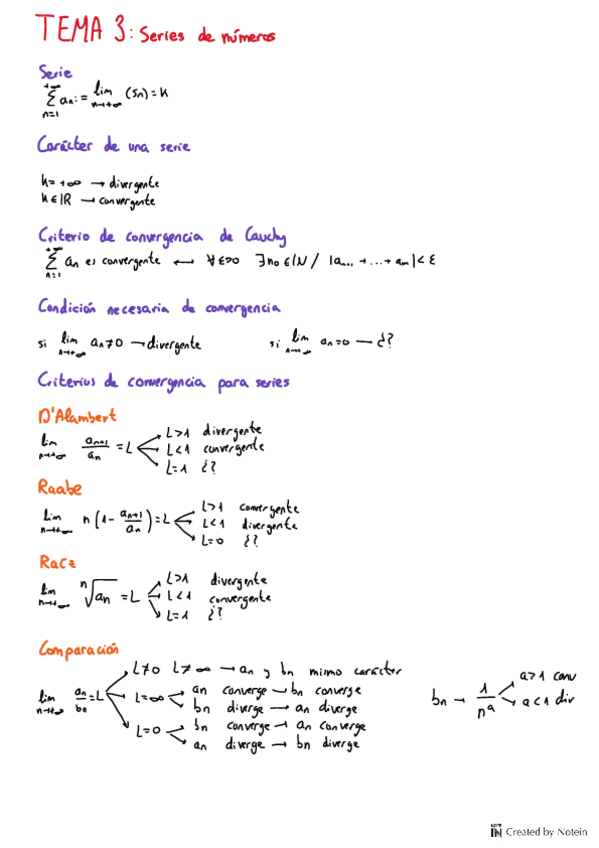 TEMA 3: Series de números
Serie
+∞ ∑ n=1 an := lim n→+∞ (Sn) = K
Carácter de una serie
K = +∞ → divergente
K ∈ ℝ → convergente
Criterio de convergencia de Cauchy
+∞ ∑ n=1 an es convergente ↔ ∀ε>0 ∃no ∈ ℕ / |an+1 + ... + am| < ε
Condición necesaria de convergencia
si lim n→+∞ an ≠ 0 → divergente si lim n→+∞ an = 0 — ¿?
Criterios de convergencia para series
D'Alambert
lim n→+∞ an+1/an = L
L>1 divergente
L<1 convergente
L=1 ¿?
Raabe
lim n→+∞ n(1 - an+1/an) = L
L>1 convergente
L<1 divergente
L=0 ¿?
Raíz
lim n→+∞ ⁿ√an = L
L>1 divergente
L<1 convergente
L=1 ¿?
Comparación
lim n→+∞ an/bn = L
L≠0 L≠∞ → an y bn mismo carácter
L=∞
an converge → bn converge
bn diverge → an diverge
L=0
bn converge → an converge
an diverge → bn diverge
bn → 1/nᵃ
a>1 conv
a<1 div
NOTE IN Created by Notein